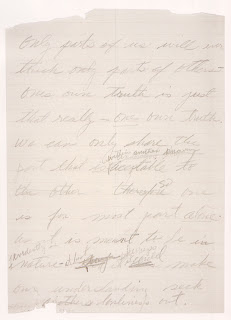 Only parts of us will ever
touch only parts of others —
Ones own truth is just
that really — ones own truth.
We can only share the
within anothers knowing
part that is acceptable to
the other therefore so one
is for most part alone.
as it is meant to be in
nature
make
our understanding seek
another's loneliness out.